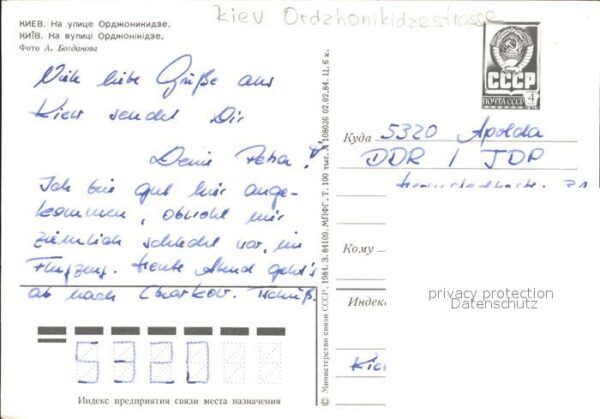 Kiev Ordzhonikidzestrasse
КИЕВ. На улице Орджоникидзе.
КИЇВ. На вулиці Орджонікідзе.
Фото А. Богданова
Viele liebe Grüße aus
Kiew sendet Dir
Deine Petra!
Ich bin gut hier ange-
kommen, obwohl mir
ziemlich schlecht war, im
Flugzeug. Heute Abend geht's
ab nach Charkow. Tschüß.
© Министерство связи СССР. 1984. З. 84109. МПФГ. Т. 100 тыс. А 108036 02.02.84. Ц. 6 к.
СССР
ПОЧТА СССР 4
Куда 5320 Apolda
DDR / ГДР
Кому
Индекс
privacy protection
Datenschutz
5320
Индекс предприятия связи места назначения